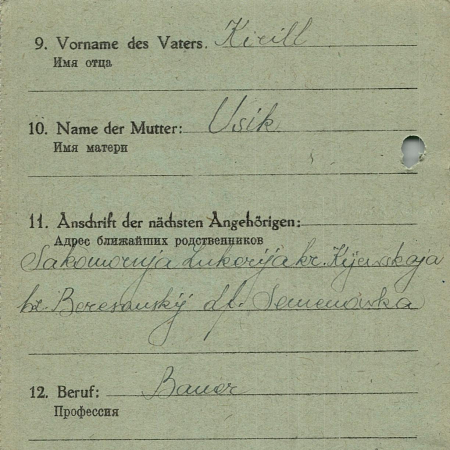 9. Vorname des Vaters. Kirill
Имя отца
10. Name der Mutter: Usik
Имя матери
11. Anschrift der nächsten Angehörigen:
Адрес ближайших родственников
Sakomornja Lukorija kr. Kijewskaja
bz Beresanskÿ df. Semenówka
12. Beruf: Bauer
Профессия